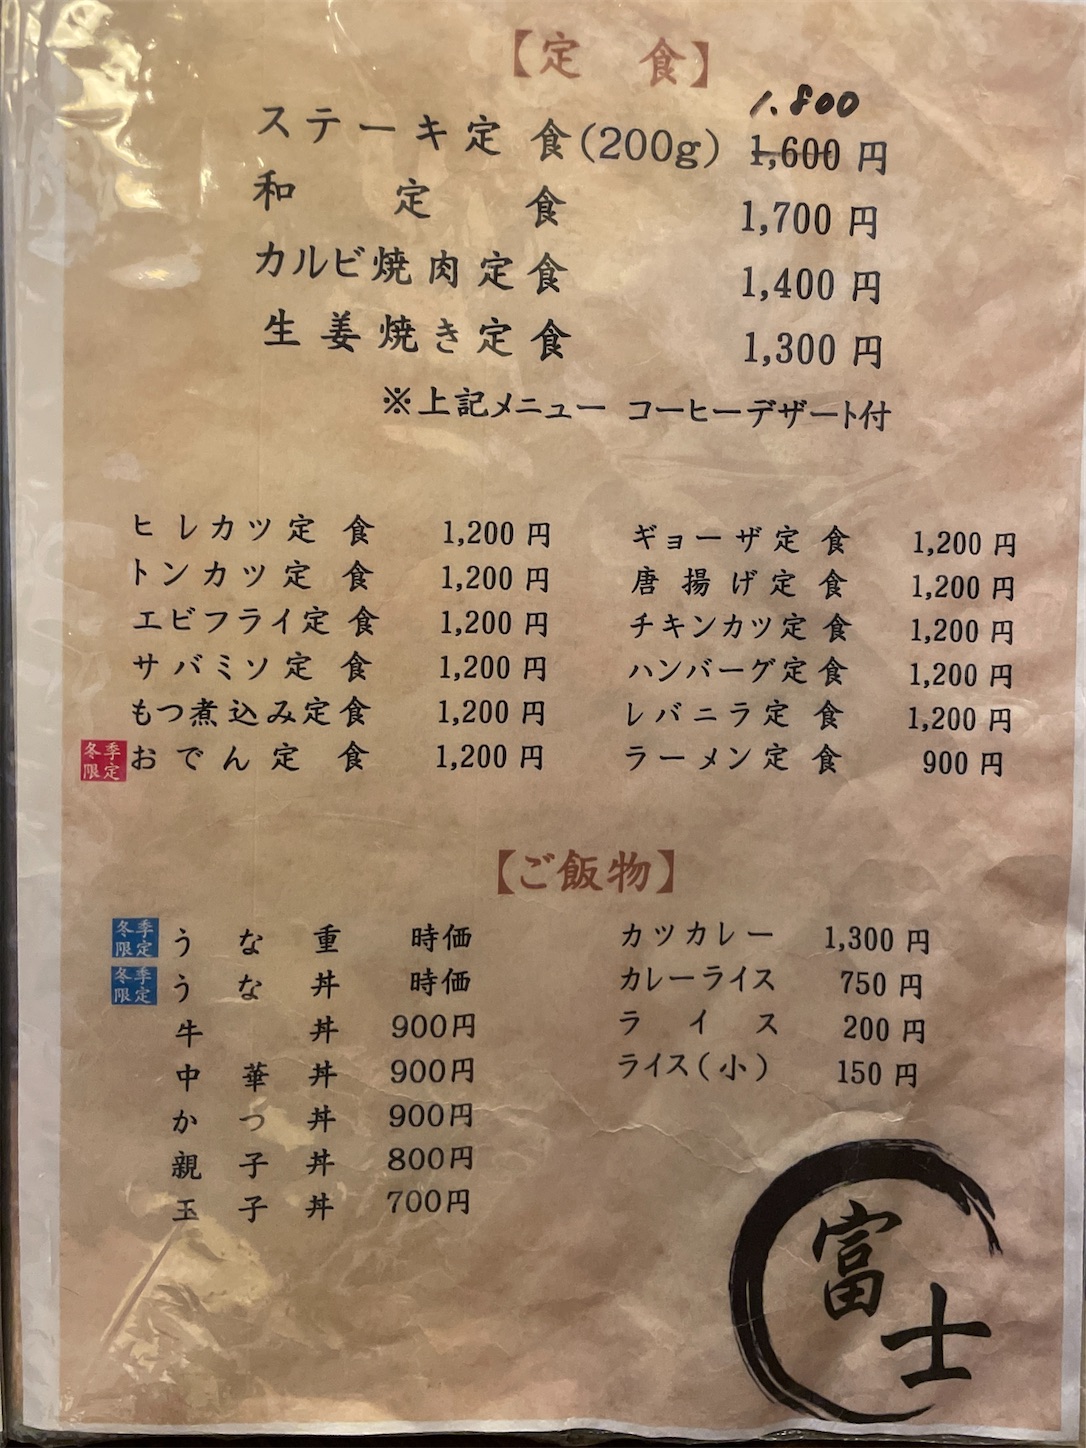 【定 食】
1.800
ステーキ定食(200g) 1,600円
和定食 1,700円
カルビ焼肉定食 1,400円
生姜焼き定食 1,300円
※上記メニュー コーヒーデザート付
ヒレカツ定食 1,200円
トンカツ定食 1,200円
エビフライ定食 1,200円
サバミソ定食 1,200円
もつ煮込み定食 1,200円
冬季限定 おでん定食 1,200円
ギョーザ定食 1,200円
唐揚げ定食 1,200円
チキンカツ定食 1,200円
ハンバーグ定食 1,200円
レバニラ定食 1,200円
ラーメン定食 900円
【ご飯物】
冬季限定 うな重 時価
冬季限定 うな丼 時価
牛丼 900円
中華丼 900円
かつ丼 900円
親子丼 800円
玉子丼 700円
カツカレー 1,300円
カレーライス 750円
ライス 200円
ライス(小) 150円
富士